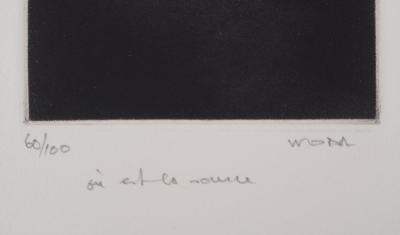 60/100
où est la source